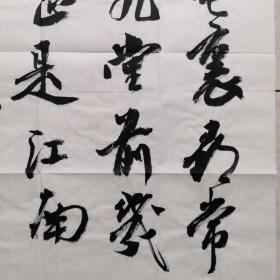 裏尋常
九堂前幾
正是江南